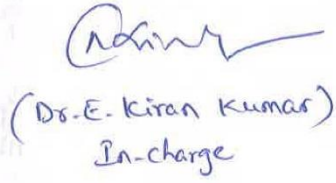 (Dr. E. Kiran Kumar)
In-charge